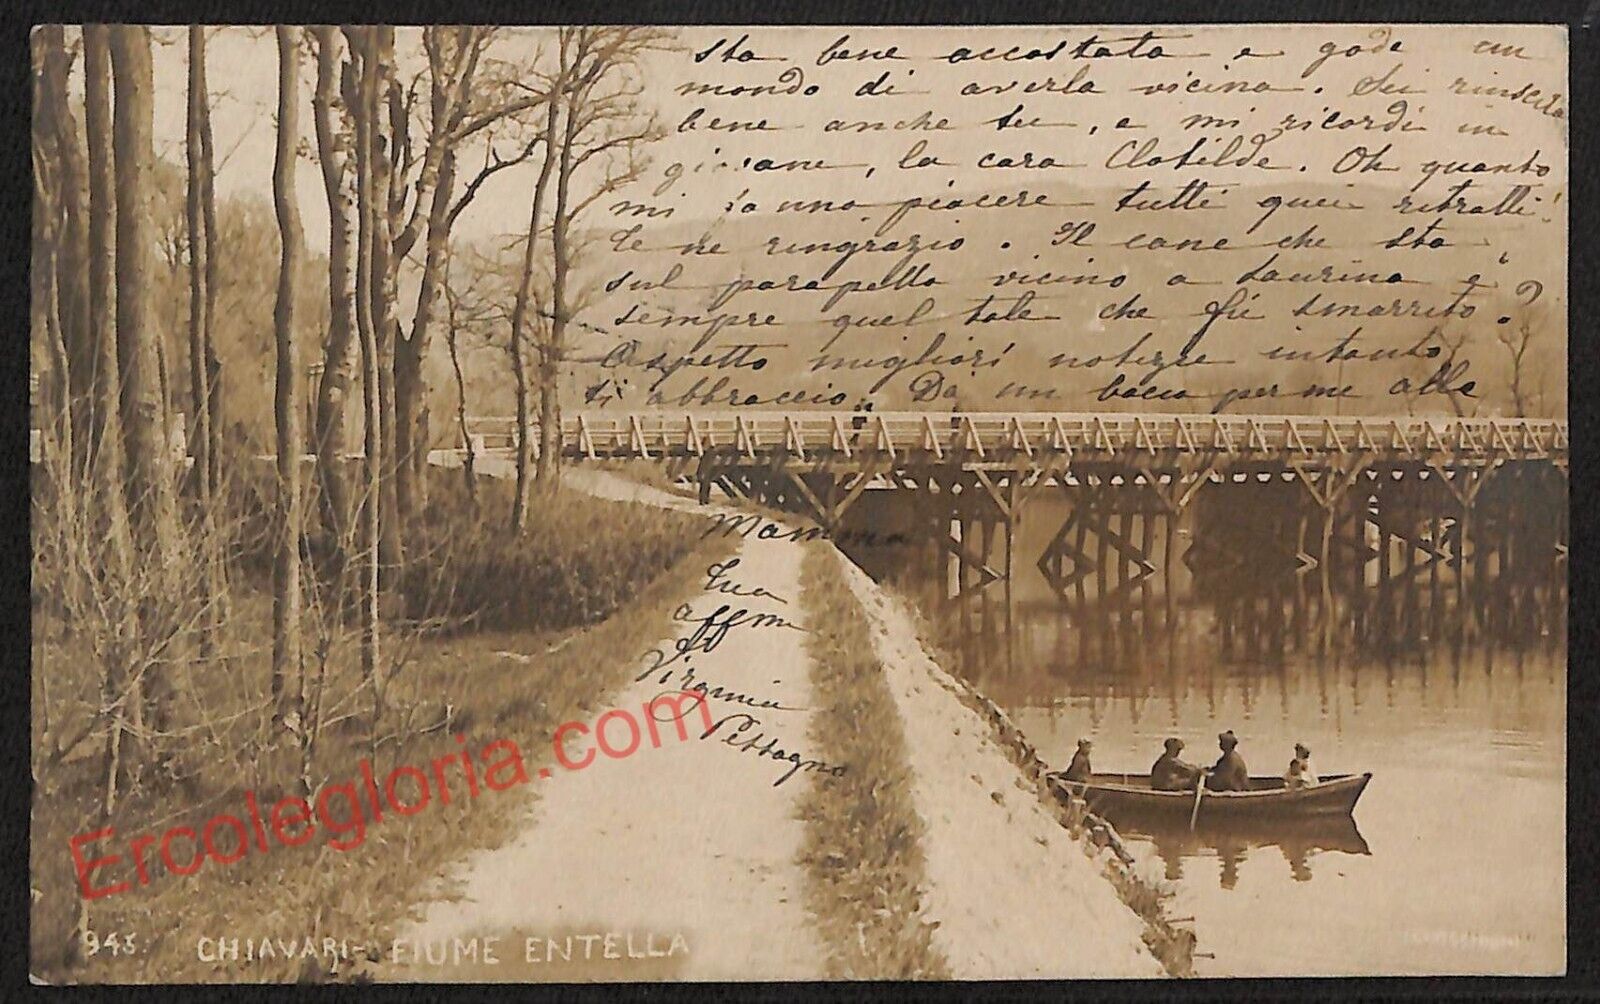 sta bene accostata e gode un
mondo di averla vicina. Sei riuscita
bene anche tu, e mi ricordi in
giovane, la cara Clotilde. Oh quanto
mi fanno piacere tutti quei ritratti!
Te ne ringrazio. Il cane che sta
sul parapetto vicino a Laurina è
sempre quel tale che fù smarrito?
Aspetto migliori notizie intanto
ti abbraccio. Dà un bacio per me alla
Mamma
tua
affma
Virginia
Pettagna
Ercolegloria.com
943. CHIAVARI - FIUME ENTELLA